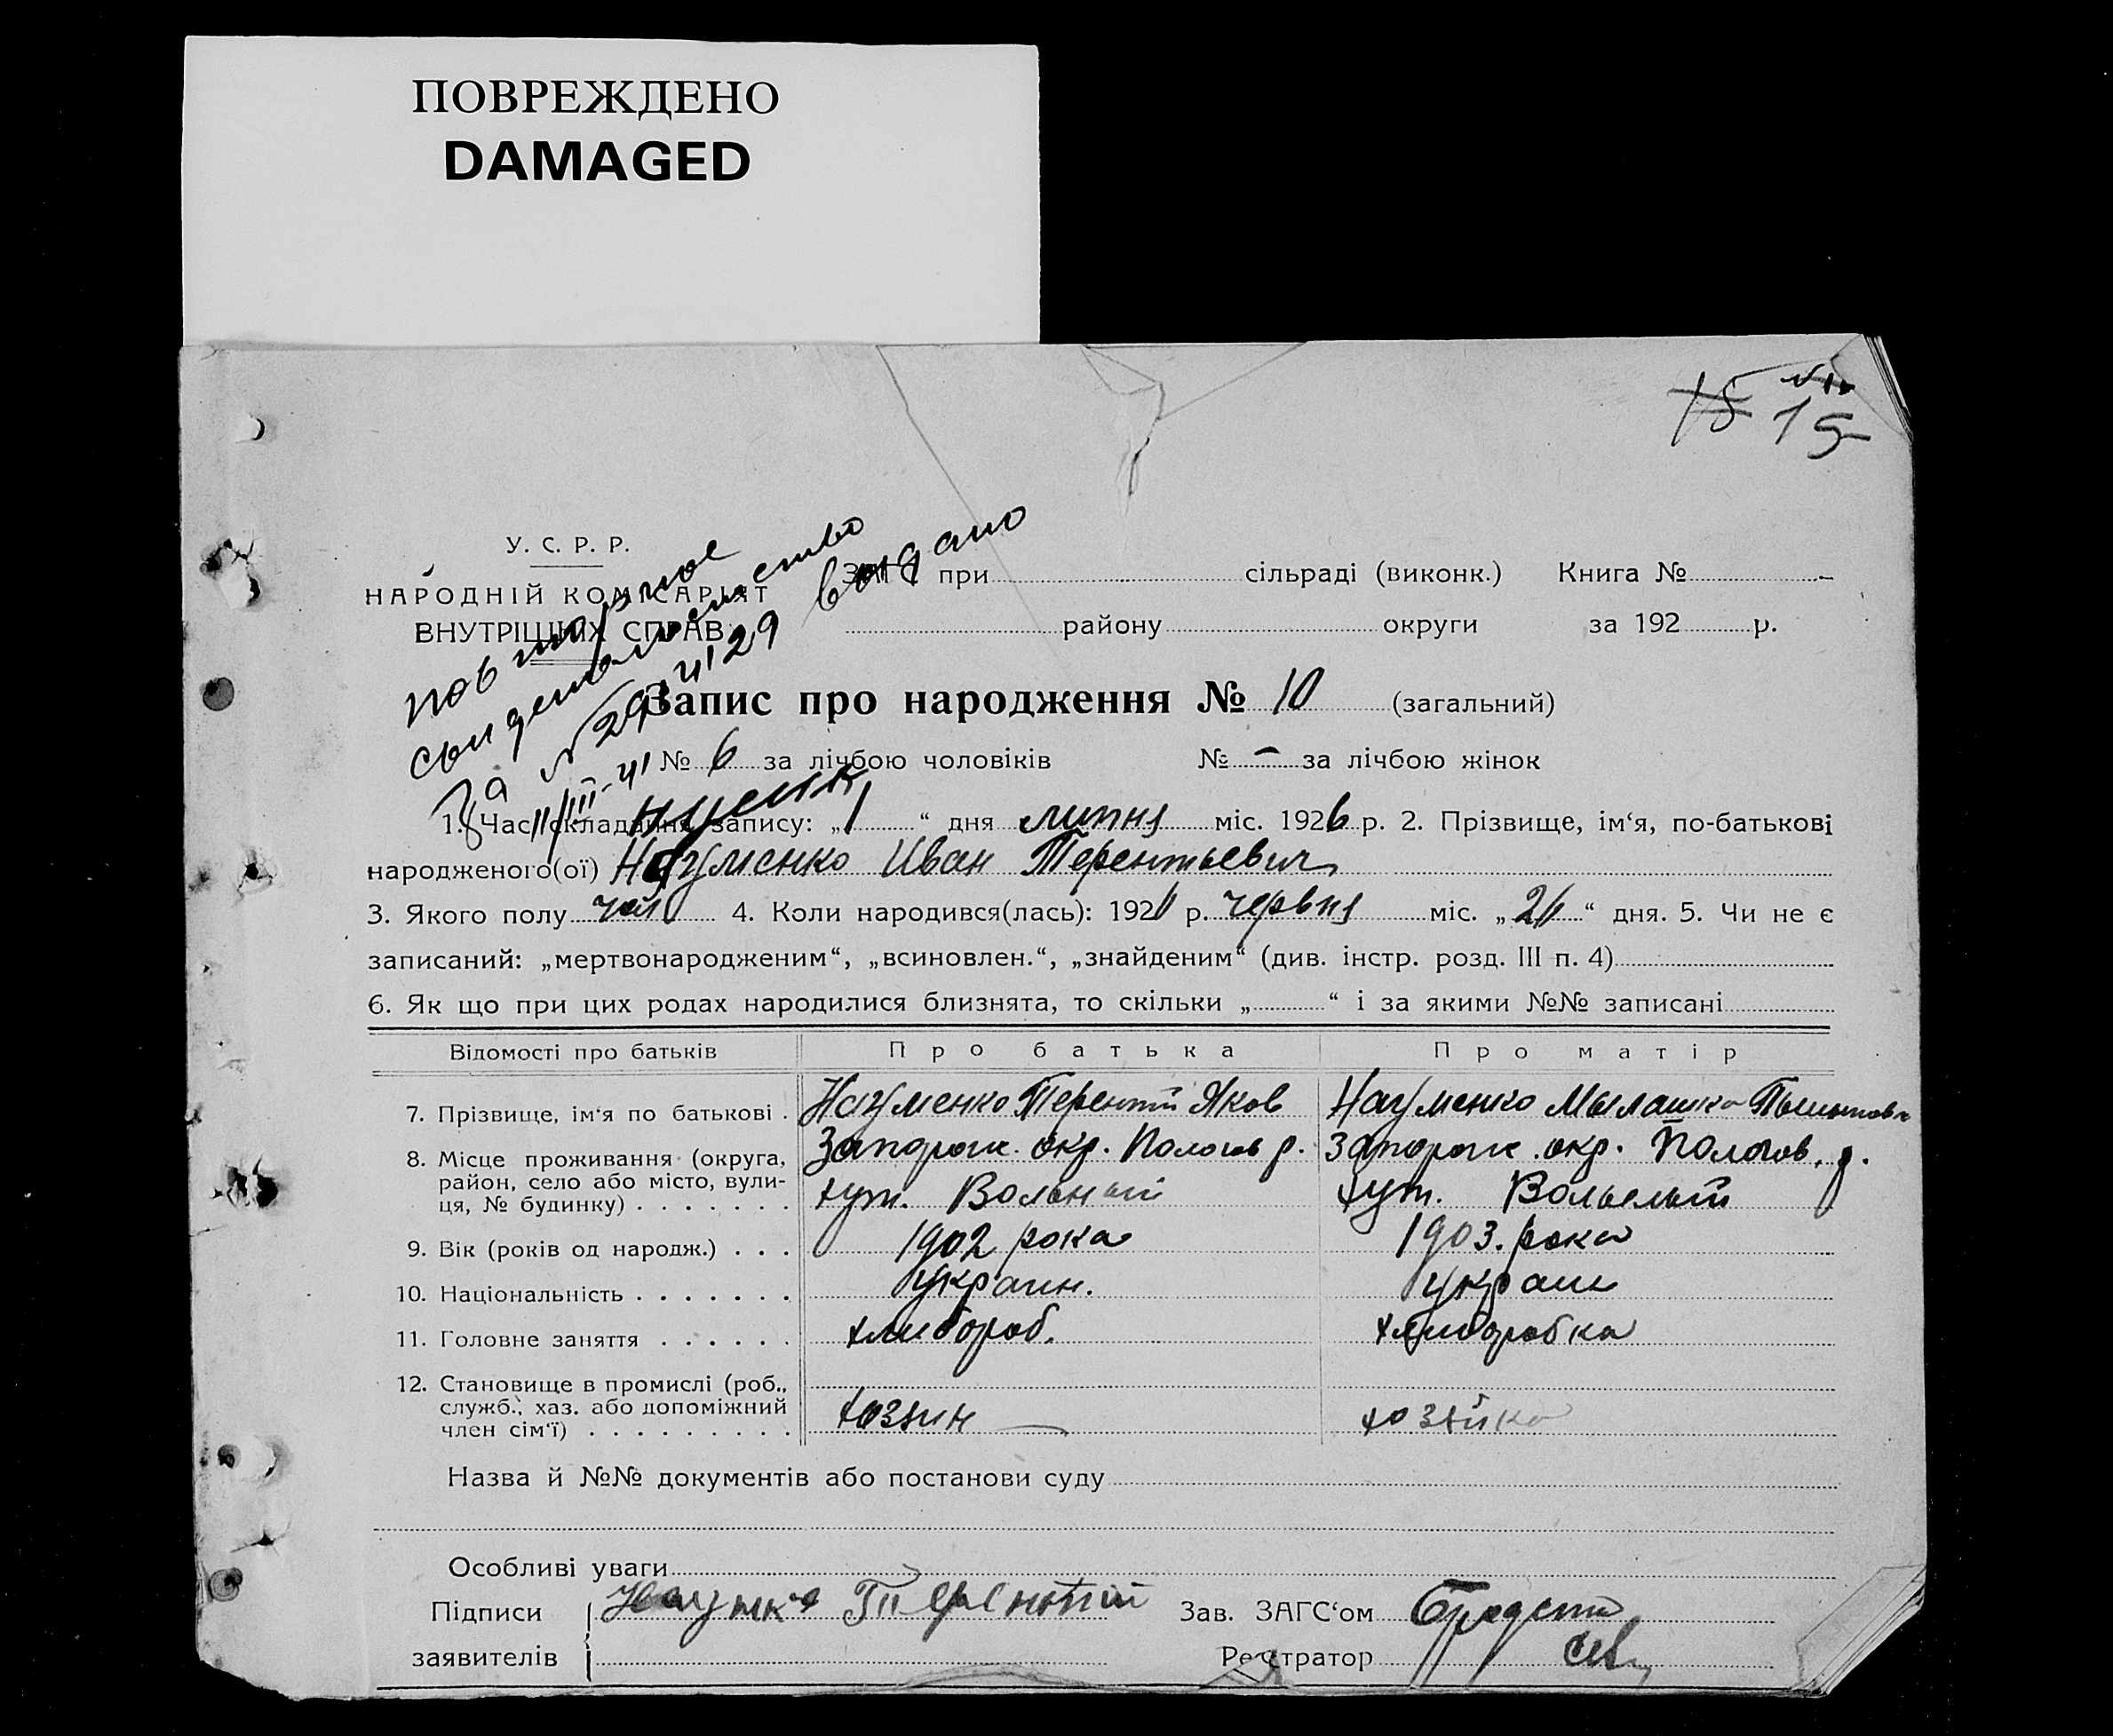 ПОВРЕЖДЕНО
DAMAGED
15 15
У. С. Р. Р.
НАРОДНІЙ КОМІСАРІЯТ
ВНУТРІШНІХ СПРАВ
повторное
свидетельство выдано
За № 29
11/III-41
ЗАГС при сільраді (виконк.) Книга №
району округи за 192 р.
Запис про народження № 10 (загальний)
№ 6 за лічбою чоловіків № – за лічбою жінок
1. Час складання запису: „1“ дня липня міс. 1926 р. 2. Прізвище, ім‘я, по-батькові
народженого(ої) Науменко Иван Терентьевич
3. Якого полу чол 4. Коли народився(лась): 192 р. червня міс. „ “ дня. 5. Чи не є
записаний: „мертвонародженим“, „всиновлен.“, „знайденим“ (див. інстр. розд. III п. 4)
6. Як що при цих родах народилися близнята, то скільки „ “ і за якими №№ записані
Відомості про батьків Про батька Про матір
7. Прізвище, ім‘я по батькові . Науменко Терентій Яков Науменко
8. Місце проживання (округа, район, село або місто, вулиця, № будинку) . . . . . . . Запорож. окр. Пологов р. Запорож. окр. Пологов. р.
хут. Вольный хут. Вольный
9. Вік (років од народж.) . . . 1902 рока 1903. рока
10. Національність . . . . . . . украин. украин
11. Головне заняття . . . . . . хлибороб. хлиборобка
12. Становище в промислі (роб., служб., хаз. або допоміжний член сім‘ї) . . . . . . . . . хозяин хозяйка
Назва й №№ документів або постанови суду
Особливі уваги
Підписи заявителів Терентій
Зав. ЗАГС‘ом
Реєстратор